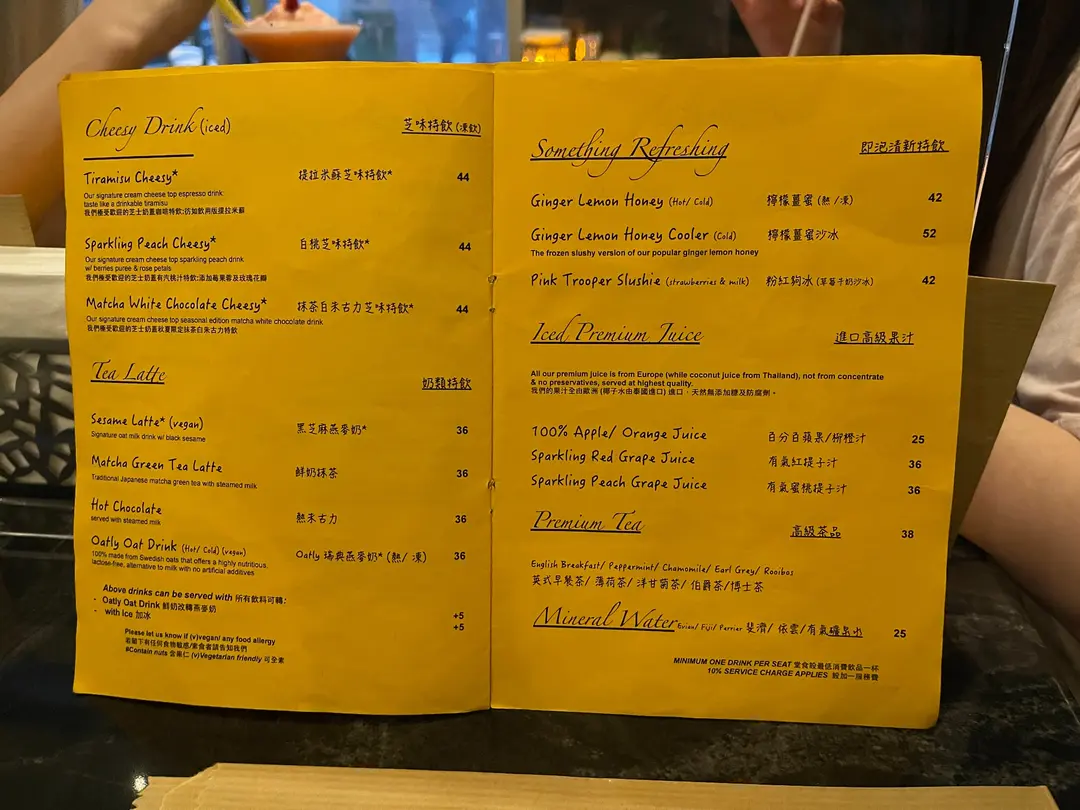 Cheesy Drink (iced) 芝味特飲 (凍飲)
Tiramisu Cheesy* 提拉米蘇芝味特飲* 44
Our signature cream cheese top espresso drink
taste like a drinkable tiramisu
我們極受歡迎的芝士奶蓋咖啡特飲;彷如飲用版提拉米蘇
Sparkling Peach Cheesy* 白桃芝味特飲* 44
Our signature cream cheese top sparkling peach drink
w/ berries puree & rose petals
我們極受歡迎的芝士奶蓋有汽桃汁特飲;添加莓果蓉及玫瑰花瓣
Matcha White Chocolate Cheesy* 抹茶白朱古力芝味特飲* 44
Our signature cream cheese top seasonal edition matcha white chocolate drink
我們極受歡迎的芝士奶蓋秋夏限定抹茶白朱古力特飲
Tea Latte 奶類特飲
Sesame Latte* (vegan) 黑芝麻燕麥奶* 36
Signature oat milk drink w/ black sesame
Matcha Green Tea Latte 鮮奶抹茶 36
Traditional Japanese matcha green tea with steamed milk
Hot Chocolate 熱朱古力 36
served with steamed milk
Oatly Oat Drink (Hot/ Cold) (vegan) Oatly 瑞典燕麥奶* (熱/ 凍) 36
100% made from Swedish oats that offers a highly nutritious,
lactose-free, alternative to milk with no artificial additives
Above drinks can be served with 所有飲料可轉:
- Oatly Oat Drink 鮮奶改轉燕麥奶 +5
- with ice 加冰 +5
Please let us know if (v)vegan/ any food allergy
若閣下有任何食物敏感/素食者請告知我們
#Contain nuts 含果仁 (v)Vegetarian friendly 可全素
Something Refreshing 即泡清新特飲
Ginger Lemon Honey (Hot/ Cold) 檸檬薑蜜 (熱 /凍) 42
Ginger Lemon Honey Cooler (Cold) 檸檬薑蜜沙冰 52
The frozen slushy version of our popular ginger lemon honey
Pink Trooper Slushie (strawberries & milk) 粉紅狗冰 (草莓牛奶沙冰) 42
Iced Premium Juice 進口高級果汁
All our premium juice is from Europe (while coconut juice from Thailand), not from concentrate
& no preservatives, served at highest quality.
我們的果汁全由歐洲 (椰子水由泰國進口) 進口﹐天然無添加糖及防腐劑。
100% Apple/ Orange Juice 百分百蘋果/柳橙汁 25
Sparkling Red Grape Juice 有氣紅提子汁 36
Sparkling Peach Grape Juice 有氣蜜桃提子汁 36
Premium Tea 高級茶品 38
English Breakfast/ Peppermint/ Chamomile/ Earl Grey/ Rooibos
英式早餐茶/ 薄荷茶/ 洋甘菊茶/ 伯爵茶/博士茶
Mineral Water Evian/ Fiji/ Perrier 斐濟/ 依雲/ 有氣礦泉水 25
MINIMUM ONE DRINK PER SEAT 堂食設最低消費飲品一杯
10% SERVICE CHARGE APPLIES 設加一服務費